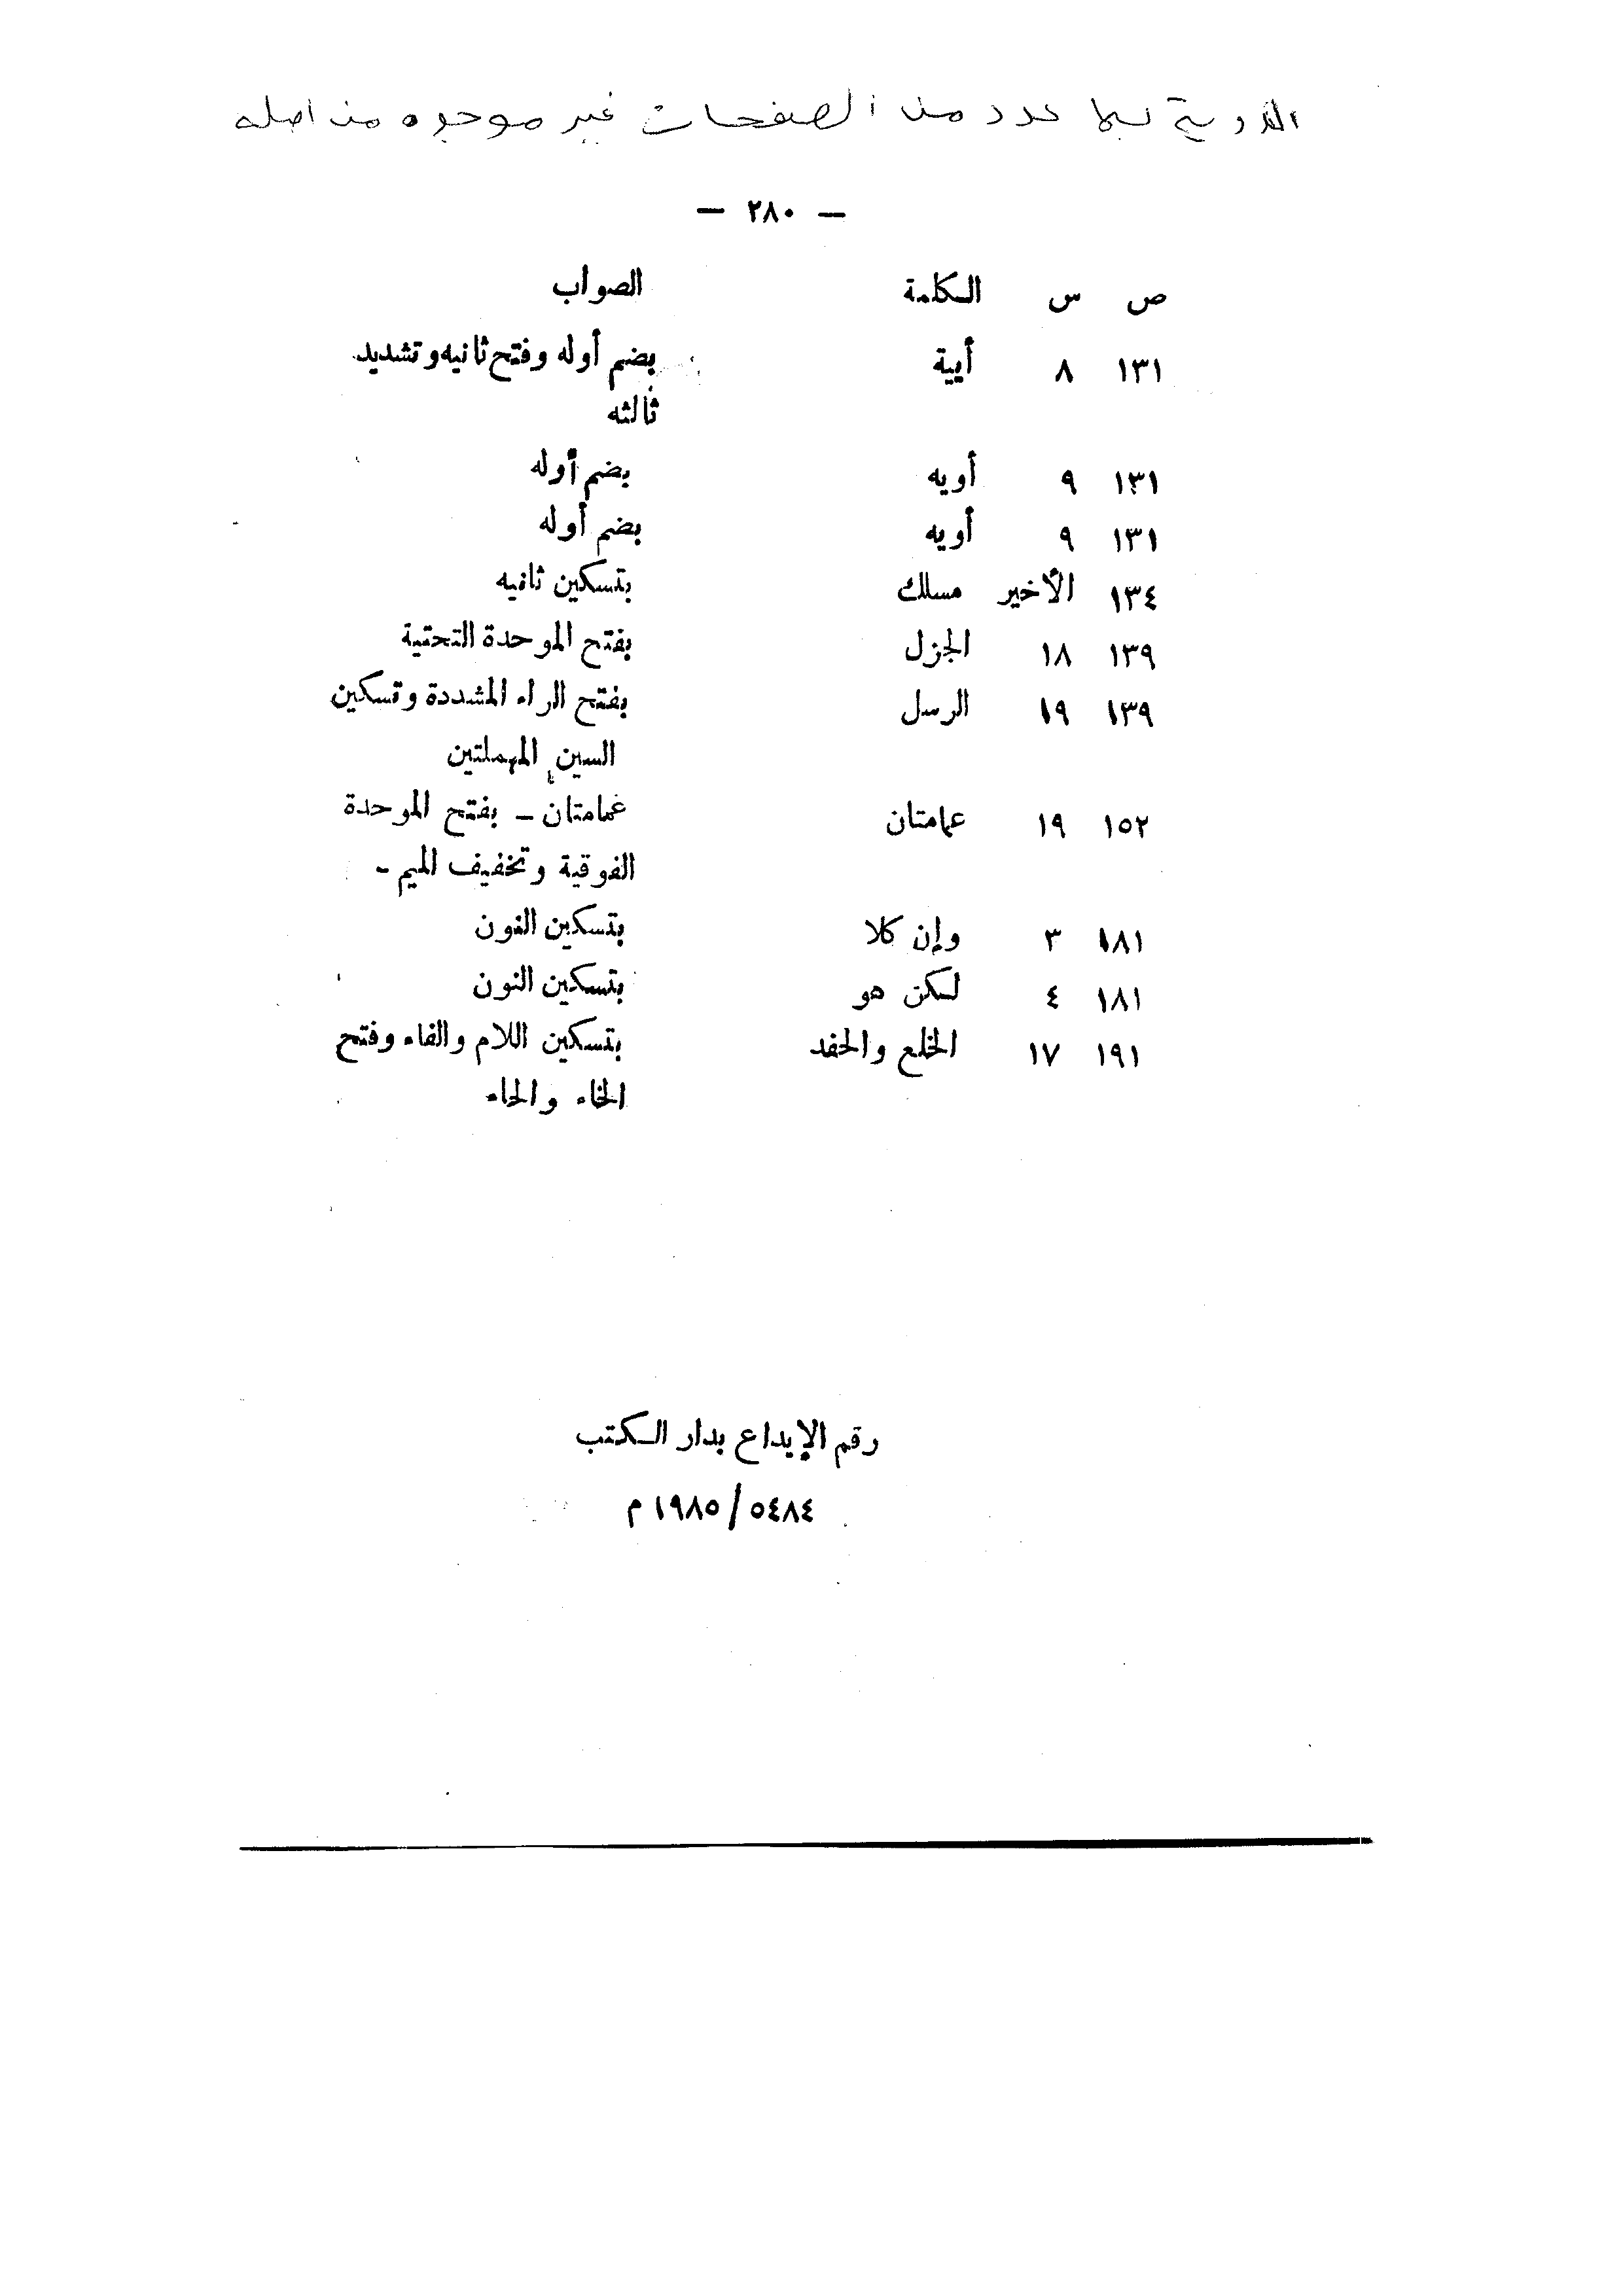 الدورية بها عدد من الصفحات غير موجوده من اصله
— ٢٨٠ —
ص س الكلمة الصواب
١٣١ ٨ أيية بضم أوله وفتح ثانيه وتشديد
ثالثه
١٣١ ٩ أويه بضم أوله
١٣١ ٩ أويه بضم أوله
١٣٤ الأخير مسلك بتسكين ثانيه
١٣٩ ١٨ الجزل بفتح الموحدة التحتية
١٣٩ ١٩ الرسل بفتح الراء المشددة وتسكين
السين المهملتين
١٥٢ ١٩ عمامتان غمامتان – بفتح الموحدة
الفوقية وتخفيف الميم –
١٨١ ٣ وإن كلا بتسكين النون
١٨١ ٤ لكن هو بتسكين النون
١٩١ ١٧ الخلع والحفد بتسكين اللام والفاء وفتح
الخاء والحاء
رقم الإيداع بدار الكتب
٥٤٨٤/ ١٩٨٥ م